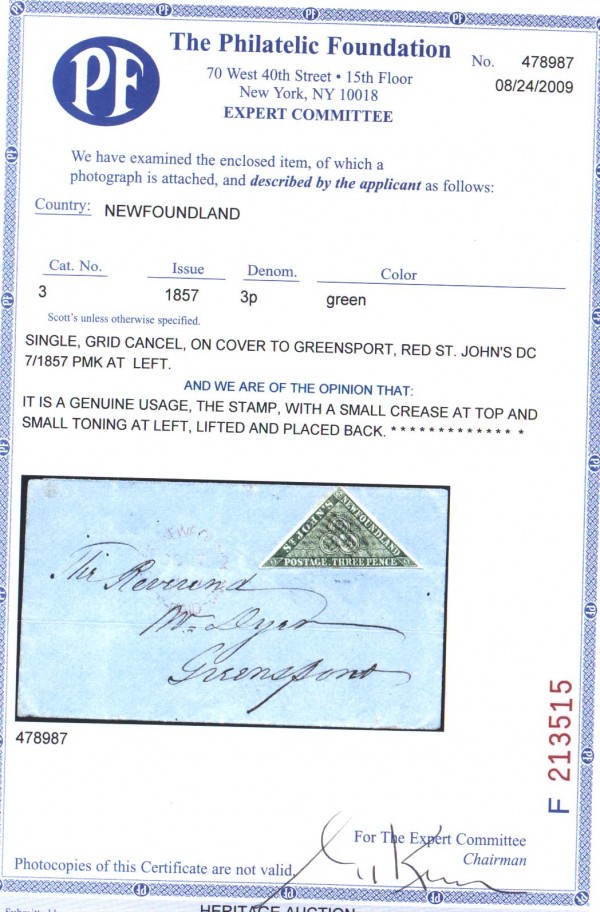 PF
The Philatelic Foundation
No. 478987
70 West 40th Street • 15th Floor
New York, NY 10018
08/24/2009
EXPERT COMMITTEE
We have examined the enclosed item, of which a
photograph is attached, and described by the applicant as follows:
Country: NEWFOUNDLAND
Cat. No. Issue Denom. Color
3 1857 3p green
Scott's unless otherwise specified.
SINGLE, GRID CANCEL, ON COVER TO GREENSPORT, RED ST. JOHN'S DC
7/1857 PMK AT LEFT.
AND WE ARE OF THE OPINION THAT:
IT IS A GENUINE USAGE, THE STAMP, WITH A SMALL CREASE AT TOP AND
SMALL TONING AT LEFT, LIFTED AND PLACED BACK. * * * * * * * * * * * * * *
ST. JOHN'S NEWFOUNDLAND
POSTAGE. THREE PENCE
The Reverend
Mr. Dyer
Greenspond
478987
F 213515
For The Expert Committee
Chairman
Photocopies of this Certificate are not valid.
HERITAGE AUCTION